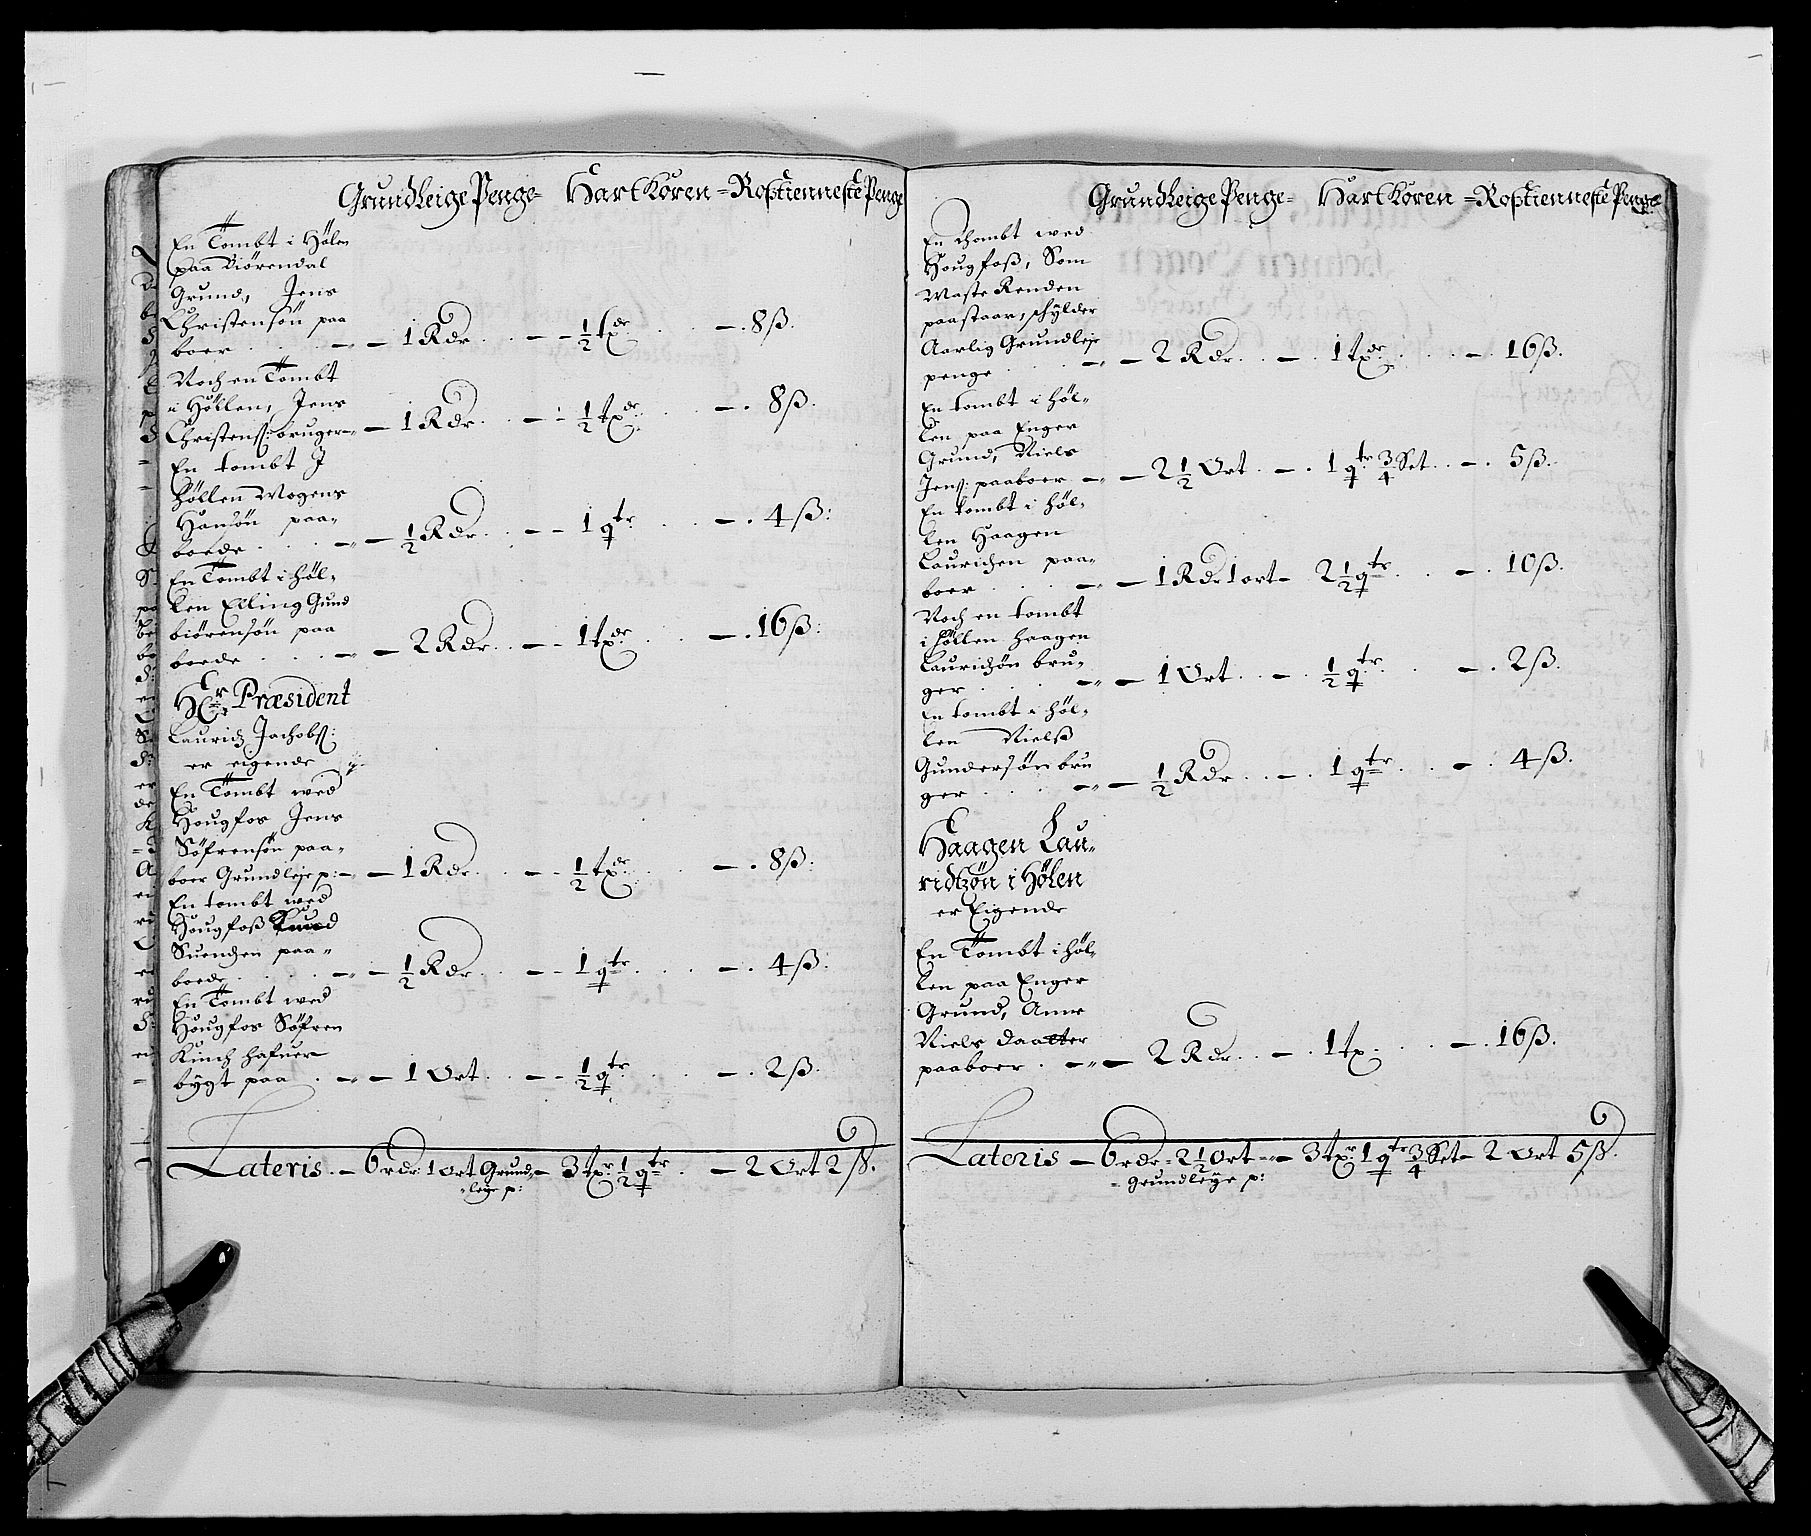 Grundleige Penge- Hartkoren = Rostienneste Penge
En Tombt i Hølen
paa Biørendal
Grund, Jens
Christensøn paa
boer — 1 Rdr — ½ txde — 8ß.
Noch en Tombt
i Høllen, Jens
Christenß: bruger — 1 Rdr — ½ txde — 8ß.
En tombt J
Høllen Mogens
Hansøn paa-
boede — ½ Rdr — 1 qtr — 4ß:
En Tombt i Høl-
len Elling Gund
biørensøn paa
boede — 2 Rdr — 1 txde — 16ß:
Hr Præsident
Lauridz Jachobß:
er eigende
En Tombt wed
Hougfos Jens
Søfrensøn paa-
boer Grundleje p: — 1 Rdr — ½ txde — 8ß:
En tombt wed
Hougfoß Knud
Suendsen paa-
boede — ½ Rdr — 1 qtr — 4ß:
En Tombt wed
Hougfos Søfren
Kinch hafuer
bygt paa — 1 Ort — ½ qtr — 2ß:
Lateris — 6 rdr 1 ort Grund- — 3 txr ½ qtr — 2 Ort 2ß.
leye p:
Grundleige Penge- Hartkoren = Rostienneste Penge
En thombt wed
Hougfoß, Som
Waste Renden
paastaar, schylder
Aarlig Grundleje
penge — 2 Rdr — 1 txde — 16ß.
En tombt i Høl-
len paa Enger
Grund, Niels
Jenß: paaboer — 2½ Ort — 1 qtr ¾ Set — 5ß.
En tombt i Høl-
len Haagen
Lauridsen paa-
boer — 1 Rdr 1 ort — 2½ qtr — 10ß.
Noch en tombt
i Høllen Haagen
Lauridsøn bru-
ger — 1 Ort — ½ qtr — 2ß.
En tombt i Høl-
len Nielß
Gundersøn bru
ger — ½ Rdr — 1 qtr — 4ß.
Haagen Lau-
ridtzøn i Hølen
er Eigende
En Tombt i Høl-
len paa Enger
Grund, Anne
Niels daatter
paaboer — 2 Rdr — 1 tx — 16ß.
Lateris — 6 rdr 2½ Ort — 3 txr 1 qtr ¾ Set — 2 Ort 5ß.
Grundleye p: